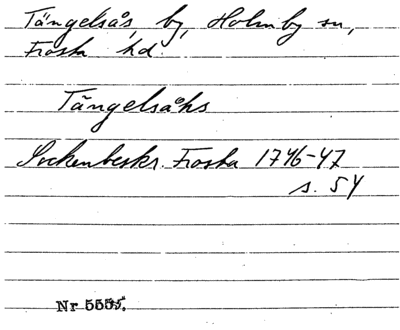 Tängelsås, by, Holmby sn,
Frosta hd.
Tängelsåhs
Sockenbeskr. Frosta 1746-47
s. 54
Nr 5555.